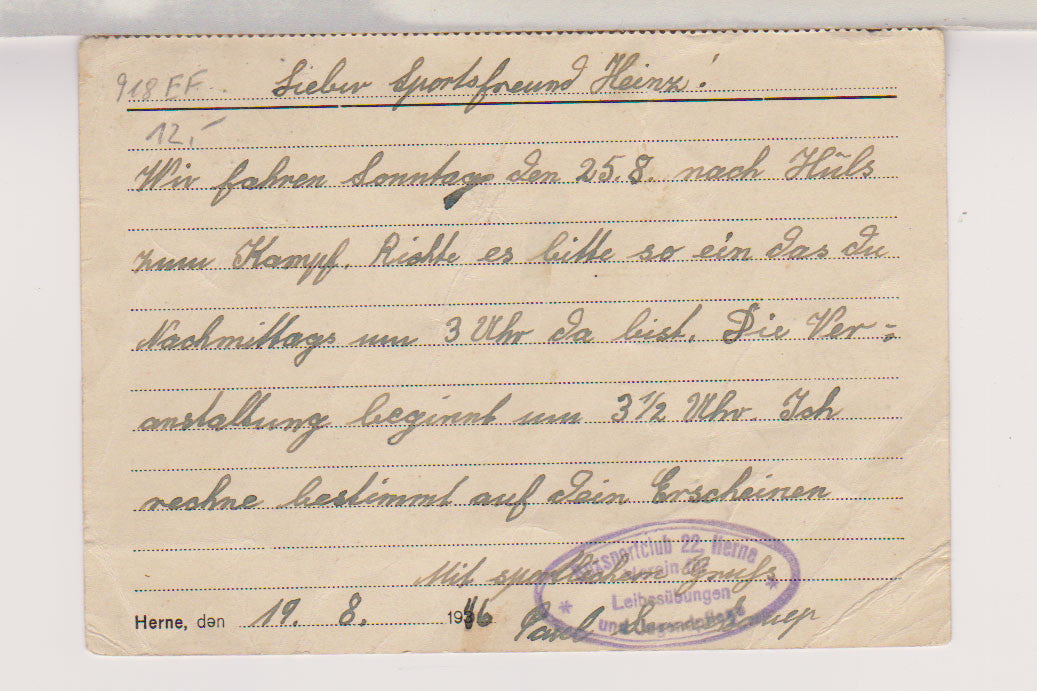 918 EF
Lieber Sportsfreund Heinz!
12,-
Wir fahren Sonntag den 25.8. nach Hüls
zum Kampf. Richte es bitte so ein das du
Nachmittags um 3 Uhr da bist. Die Ver-
anstaltung beginnt um 3 1/2 Uhr. Ich
rechne bestimmt auf dein Erscheinen
Mit sportlichem Gruß
Herne, den 19. 8. 1946 Paul
sportclub 22, Herne
Verein für
Leibesübungen
und